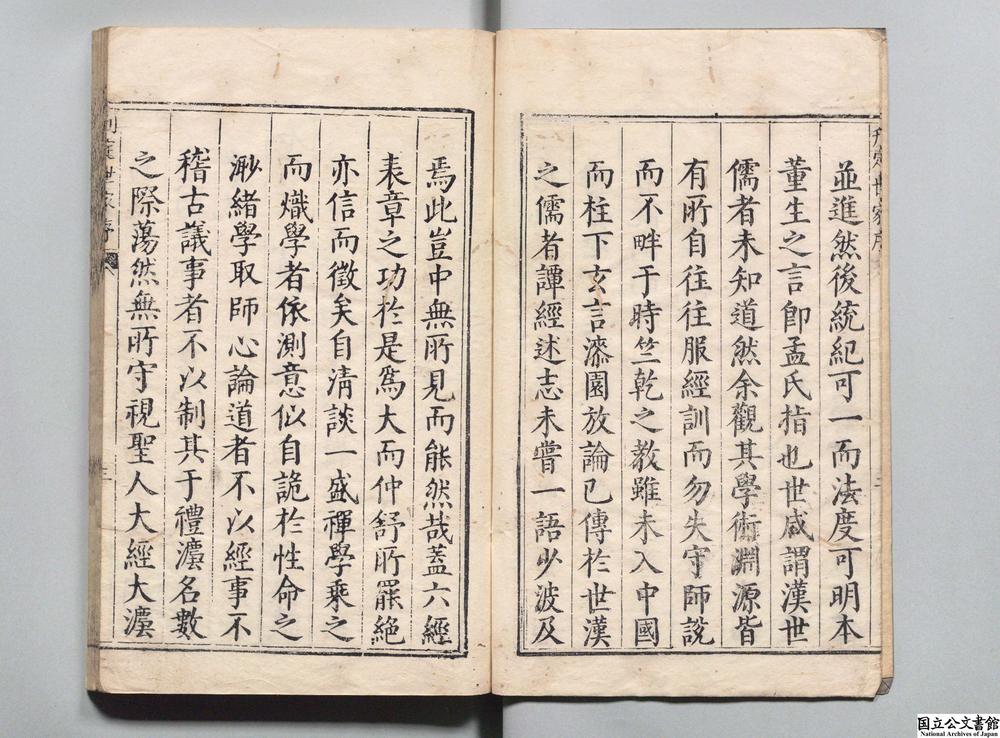 並進然後統紀可一而法度可明本
董生之言卽孟氏指也世咸謂漢世
儒者未知道然余觀其學術淵源皆
有所自往往服經訓而勿失守師說
而不畔于時竺乾之教雖未入中國
而柱下玄言漆園放論已傳於世漢
之儒者譚經述志未嘗一語少波及
焉此豈中無所見而能然哉蓋六經
表章之功於是爲大而仲舒所罷絕
亦信而徵矣自清談一盛禪學乘之
而熾學者依測意似自詭於性命之
渺緒學取師心論道者不以經事不
稽古議事者不以制其于禮灋名數
之際蕩然無所守視聖人大經大灋
世家序
三
国立公文書館
National Archives of Japan